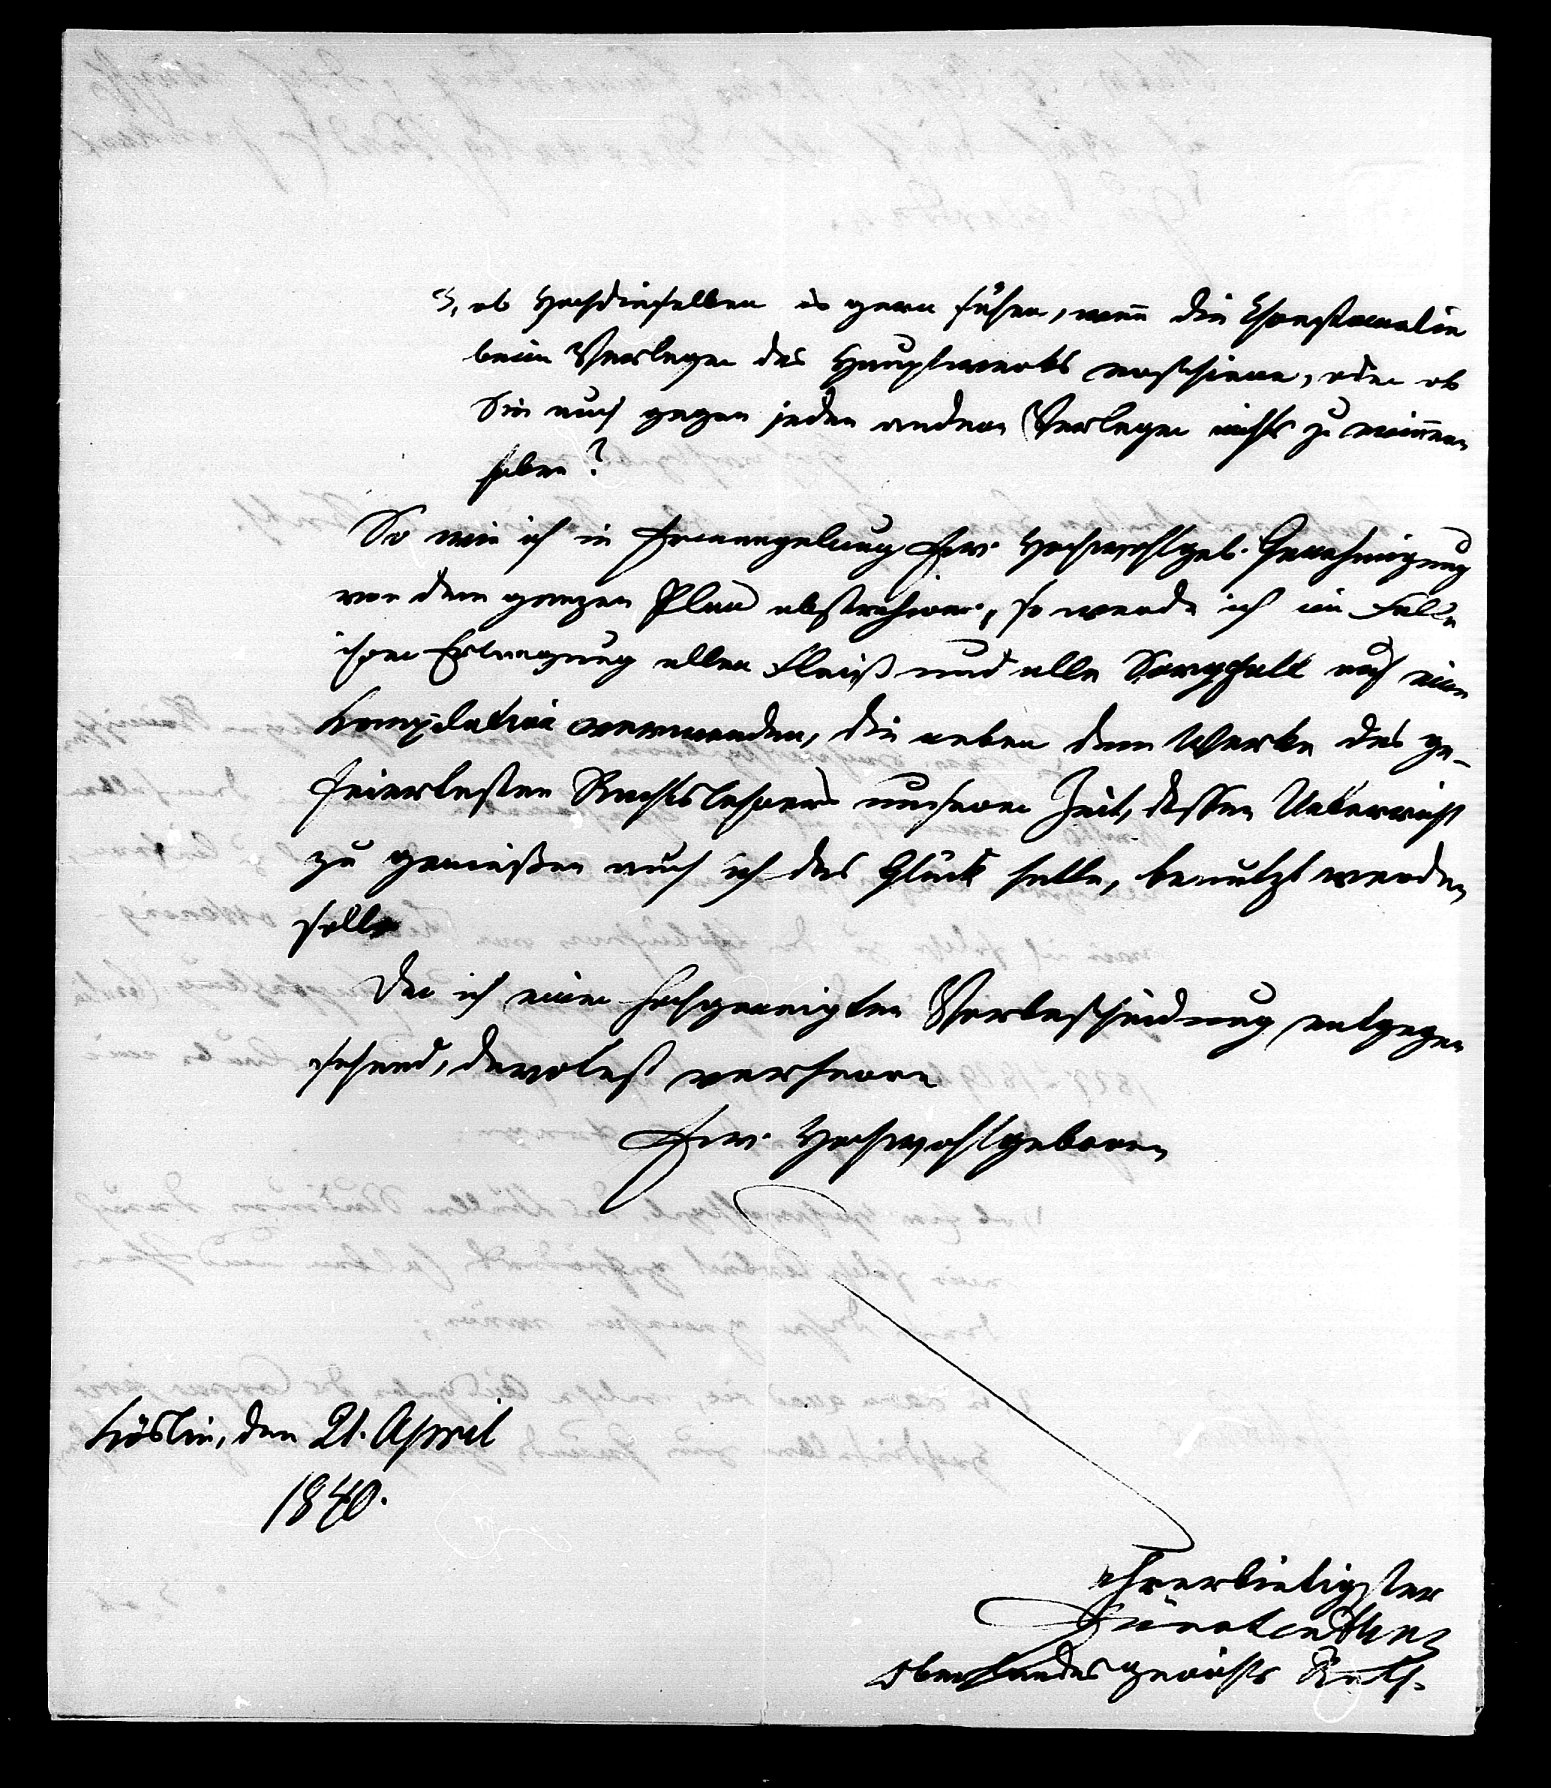 3, ob Hochdieselben es gern sähen, wenn die Chrestomatie
beim Verleger des Hauptwerks erschiene, oder ob
Sie auch gegen jeden andern Verleger nichts zu erinnern
haben?
So wie ich in Ermangelung Ew. Hochwohlgeb. Genehmigung
von dem ganzen Plan abstrahire, so werde ich im Falle
ihrer Erlangung allen Fleiß und alle Sorgfalt auf eine
Kompilation verwenden, die neben dem Werke des ge-
feiertesten Rechtslehrers unserer Zeit, dessen Unterricht
zu genießen auch ich das Glück hatte, benutzt werden
soll.
Der ich einer hochgeneigten Verbescheidung entgegen
sehend, devotest verharre
Ew. Hochwohlgeboren
Cöslin, den 21. April
1840.
ehrerbietigster
Oberlandesgerichts Rath.